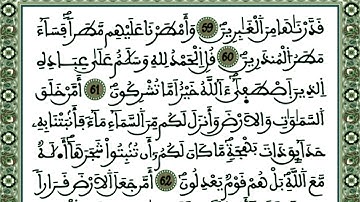 قَدَّرْنَٰهَا مِنَ اَ۬لْغَٰبِرِينَۖ 59 وَأَمْطَرْنَا عَلَيْهِم مَّطَراٗ فَسَآءَ
مَطَرُ اُ۬لْمُنذَرِينَۖ 60 قُلِ اِ۬لْحَمْدُ لِلهِ وَسَلَٰمٌ عَلَىٰ عِبَادِهِ
اِ۬لذِينَ اَ۪صْطَف۪ىٰٓ ءَآللَّهُ خَيْرٌ اَمَّا تُشْرِكُونَۖ 61 أَمَّنْ خَلَقَ
اَ۬لسَّمَٰوَٰتِ وَالَارْضَ وَأَنزَلَ لَكُم مِّنَ اَ۬لسَّمَآءِ مَآءٗ فَأَنۢبَتْنَا بِهِۦ
حَدَآئِقَ ذَاتَ بَهْجَةٖ مَّا كَانَ لَكُمُۥٓ أَن تُنۢبِتُواْ شَجَرَهَآ أَ۟لَٰهٞ
مَّعَ اَ۬للَّهِۖ بَلْ هُمْ قَوْمٞ يَعْدِلُونَۖ 62 أَمَّن جَعَلَ اَ۬لَارْضَ قَرَاراٗ